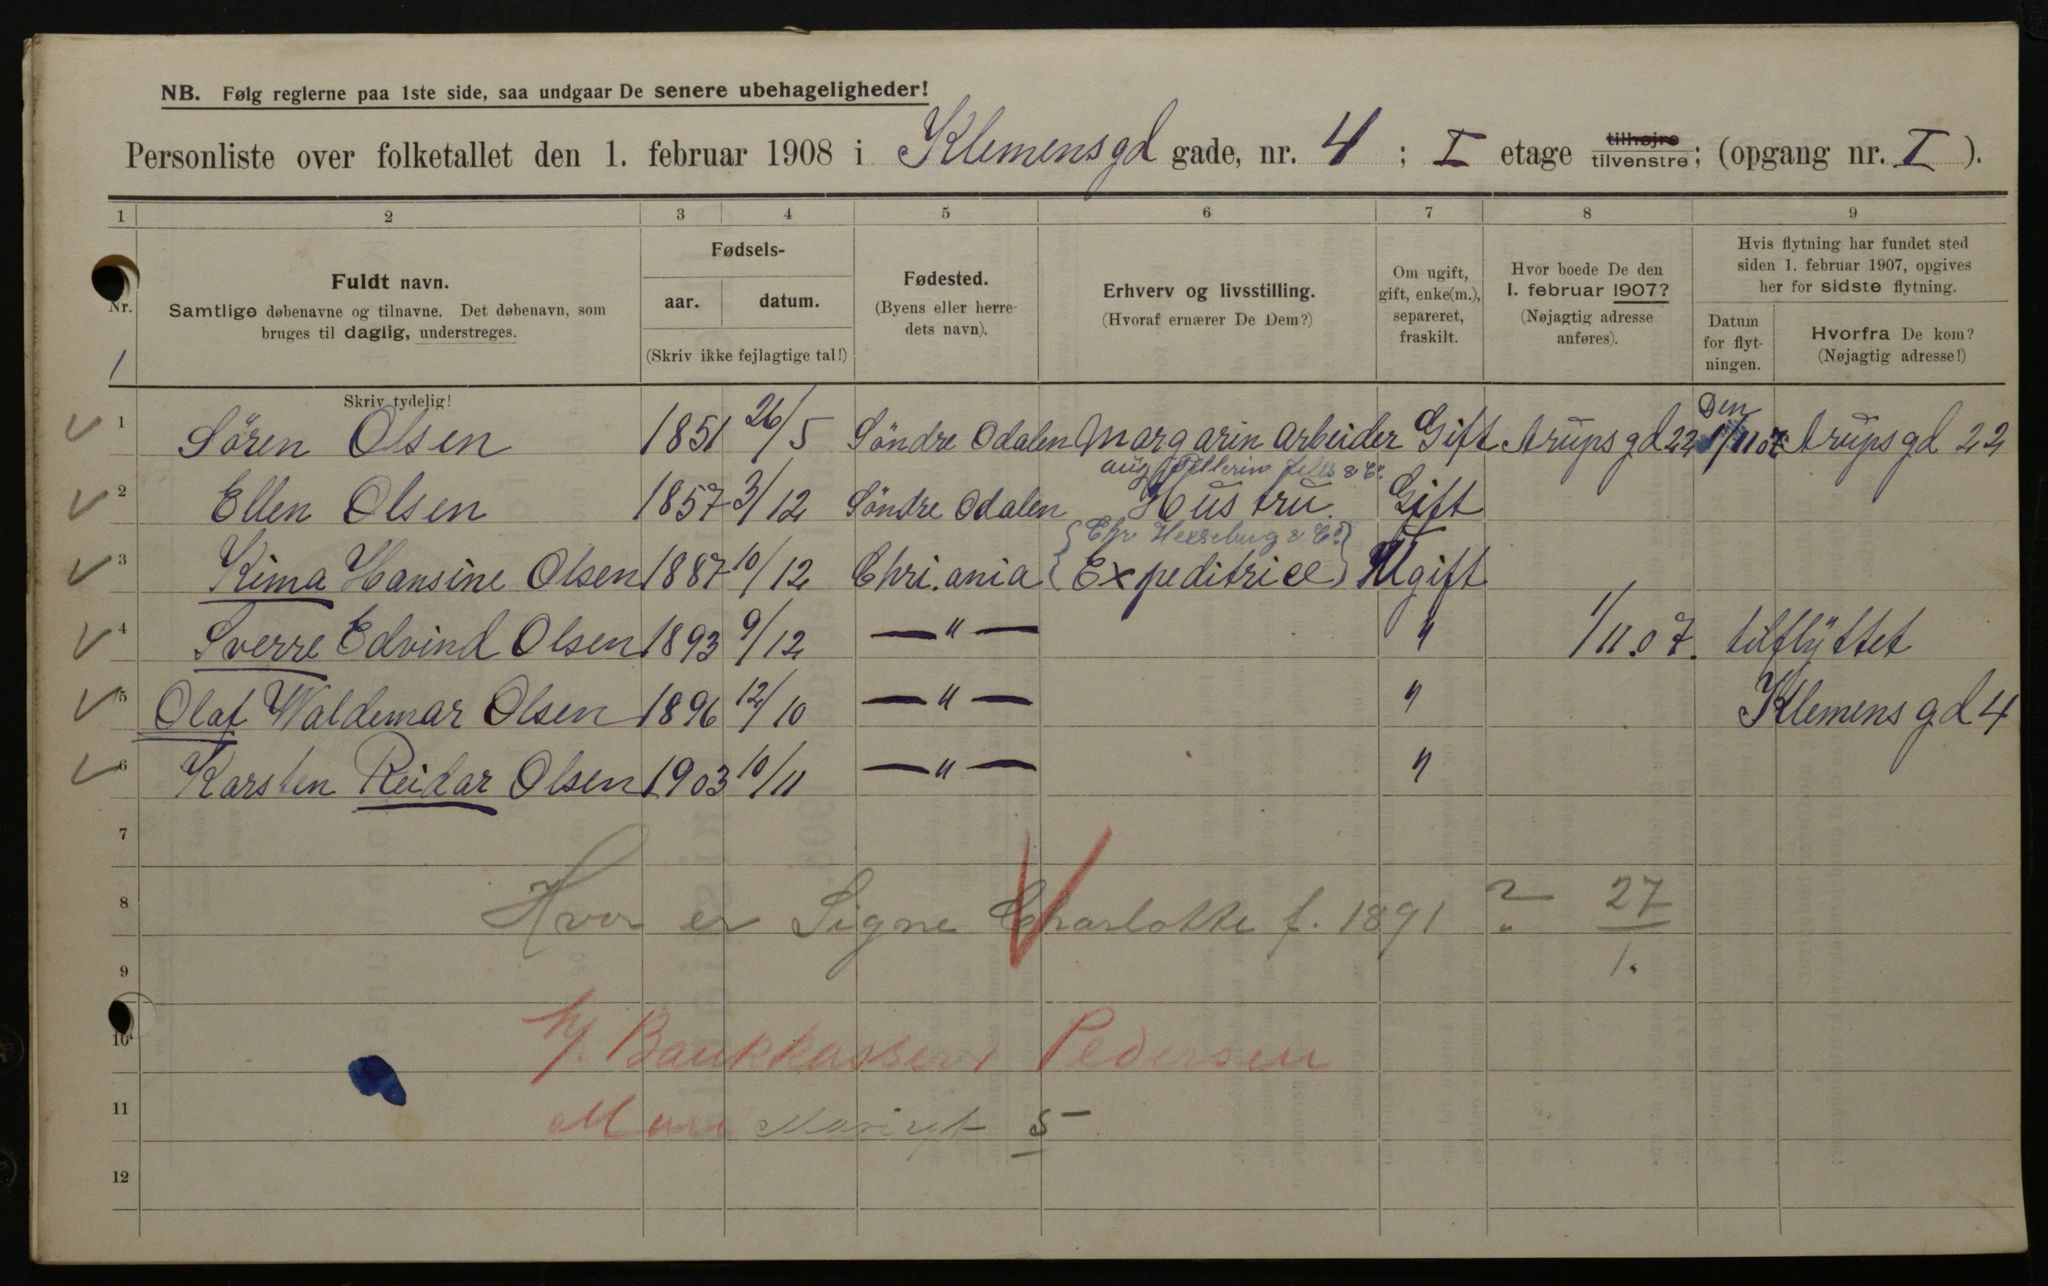 NB. Følg reglerne paa 1ste side, saa undgaar De senere ubehageligheder!
Personliste over folketallet den 1. februar 1908 i Klemensgd gade, nr. 4 ; I etage tilhøjre tilvenstre; (opgang nr. I ).
1 2 3 4 5 6 7 8 9
Nr.
1
Fuldt navn.
Samtlige døbenavne og tilnavne. Det døbenavn, som
bruges til daglig, understreges.
Skriv tydelig!
Fødsels-
aar. datum.
(Skriv ikke fejlagtige tal!)
Fødested.
(Byens eller herre-
dets navn).
Erhverv og livsstilling.
(Hvoraf ernærer De Dem?)
Om ugift,
gift, enke(m.),
separeret,
fraskilt.
Hvor boede De den
1. februar 1907?
(Nøjagtig adresse
anføres).
Hvis flytning har fundet sted
siden 1. februar 1907, opgives
her for sidste flytning.
Datum
for flyt-
ningen.
Hvorfra De kom?
(Nøjagtig adresse!)
1 Sören Olsen 1851 26/5 Söndre Odalen Margarin arbeider Gift Arupsgd 22 Den 1/11 07 Arupsgd 22
aug Pellerin fils & Co.
2 Ellen Olsen 1857 3/12 Söndre Odalen Hustru. Gift
3 Kima Hansine Olsen 1887 10/12 Chri.ania {Expeditrice} Ugift
4 Sverre Edvind Olsen 1893 9/12 — " — " 1/11.07. tilflyttet
5 Olaf Waldemar Olsen 1896 12/10 — " — " Klemensgd 4
6 Karsten Reidar Olsen 1903 10/11 — " — "
7
8 Hvor er Signe Charlotte f. 1891 ? 27/1.
9
10 h/. Bankkasserer Pedersen
11 5
12